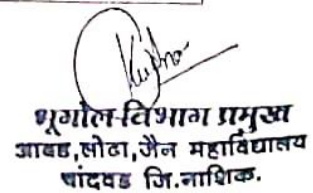 भूगोल विभाग प्रमुख
आबड, लोढा, जैन महाविद्यालय
चांदवड जि.नाशिक.